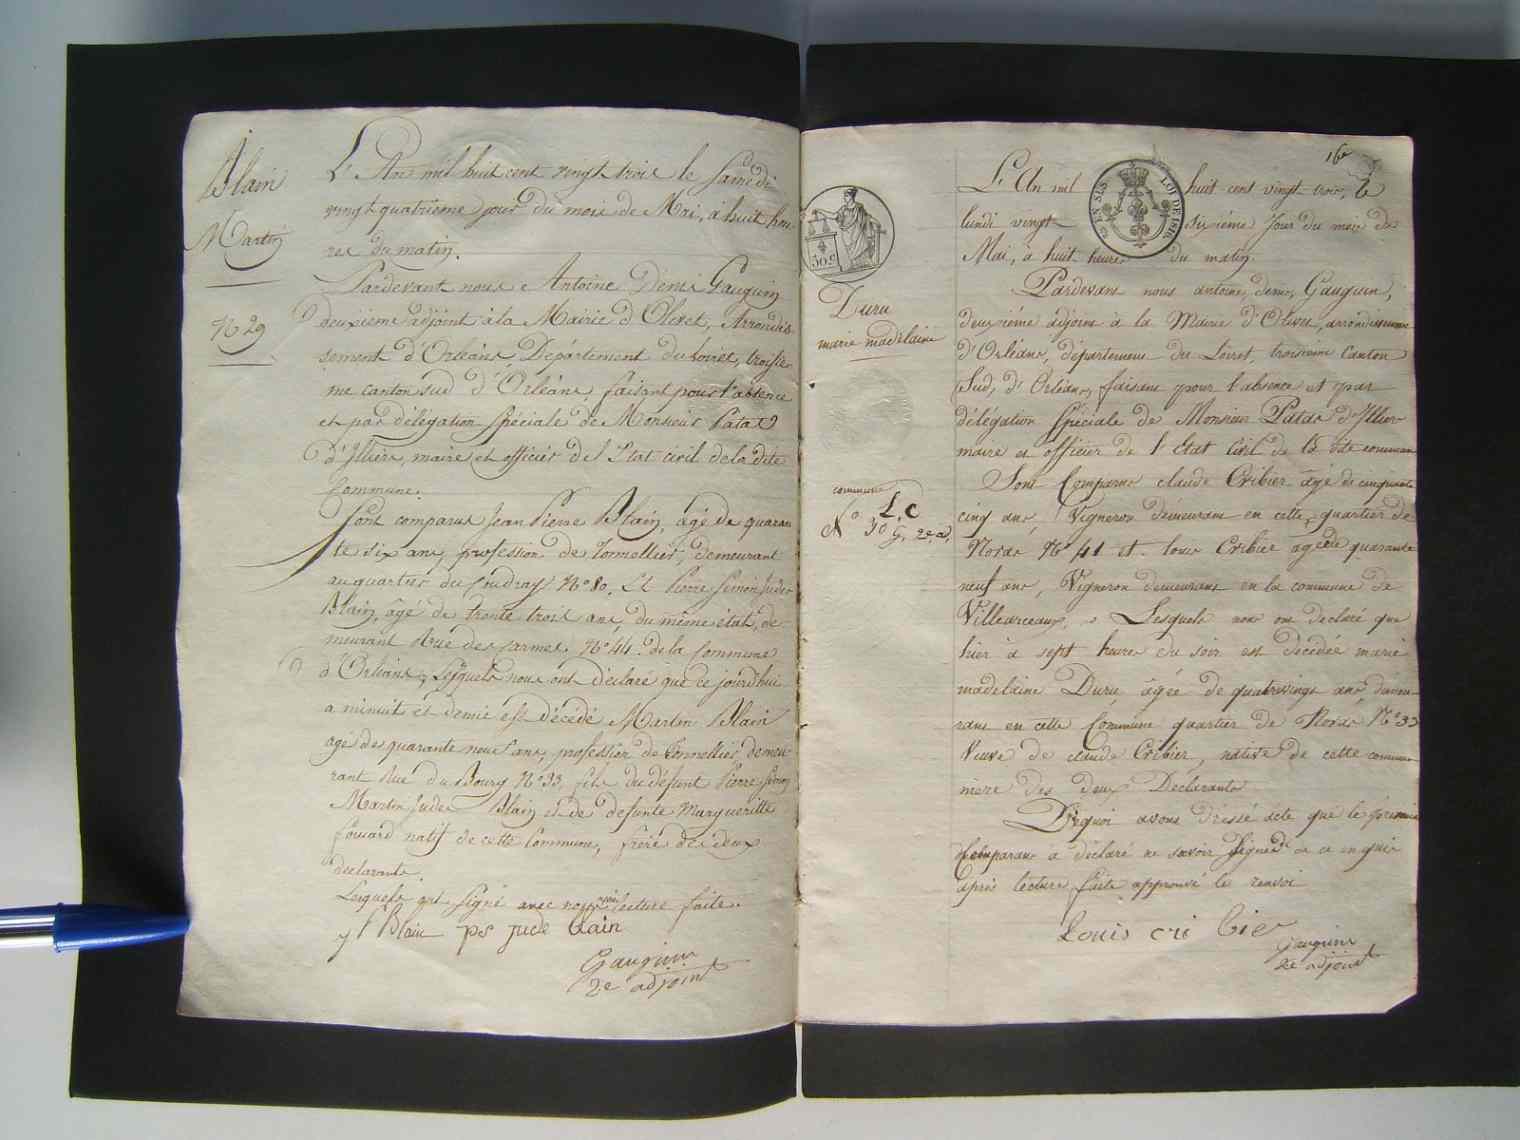 Blain
Martin
N° 29
L'An mil huit cent vingt trois le samedi
vingt quatrieme jour du mois de Mai, à huit heu-
res du matin.
Pardevant nous Antoine Denis Gauguin
deuxieme adjoint à la Mairie d'Olivet, Arrondis-
sement d'Orléans, Département du Loiret, troisie-
me canton sud d'Orléans, faisant pour l'absence
et par délégation spéciale de Monsieur Patas
d'Illiers, maire et officier de l'Etat civil de la dite
Commune.
Sont comparus Jean Pierre Blain, agé de quaran
te six ans, profession de Tonnellier, demeurant
au quartier du Coudray N° 80. Et Pierre Simon Judes
Blain, âgé de trente trois ans, du même état, de-
meurant Rue des carmes N° 44. de la Commune
d'Orléans, Lesquels nous ont déclaré que ce jourd'hui
a minuit et demie est décédé Martin Blain
agé de quarante neuf ans, profession de Tonnellier demeu-
rant Rue du Bourg N° 33, fils du défunt Pierre Simon
Martin Judes Blain et de defunte Margueritte
Fouard natif de cette Commune, frère des deux
declarants.
Lesquels ont signé avec nous lecture faite.
J Blain ps jude blain
Gauguin
2e adjoint
16e
L'An mil huit cent vingt trois, le
lundi vingt sixième Jour du mois de
Mai, à huit heures du matin.
EN SUS LOI DE 1816.
30 c
Duru
marie madelaine
Pardevant nous antoine, denis, Gauguin,
deuxième adjoint à la Mairie d'Olivet, arrondissement
d'Orléans, département du Loiret, troisième Canton
Sud, d'Orléans, faisant pour l'absence et par
délégation Spéciale de Monsieur Patas d'Illiers
maire et officier de l'Etat Civil de la dte commune
commune
L.C
N° 30 G. 2e a.
Sont Comparus claude Cribier âgé de cinquante
cinq ans, Vigneron demeurant en cette, quartier de
Noras N° 41 et louis Cribier agé de quarante
neuf ans, Vigneron demeurant en la commune de
Villarceaux, Lesquels nous ont declaré que
hier à sept heures du soir est décédée marie
madelaine Duru âgée de quatrevingt ans, demeu-
rant en cette Commune quartier de Noras N° 33
Veuve de claude Cribier, native de cette commune
mère des deux Déclarants
De quoi avons dressé acte que le premier
Comparant à déclaré ne savoir Signer de ce enquis
après lecture faite approuvé le renvoi
Louis cri bier
Gauguin
2e adjoint